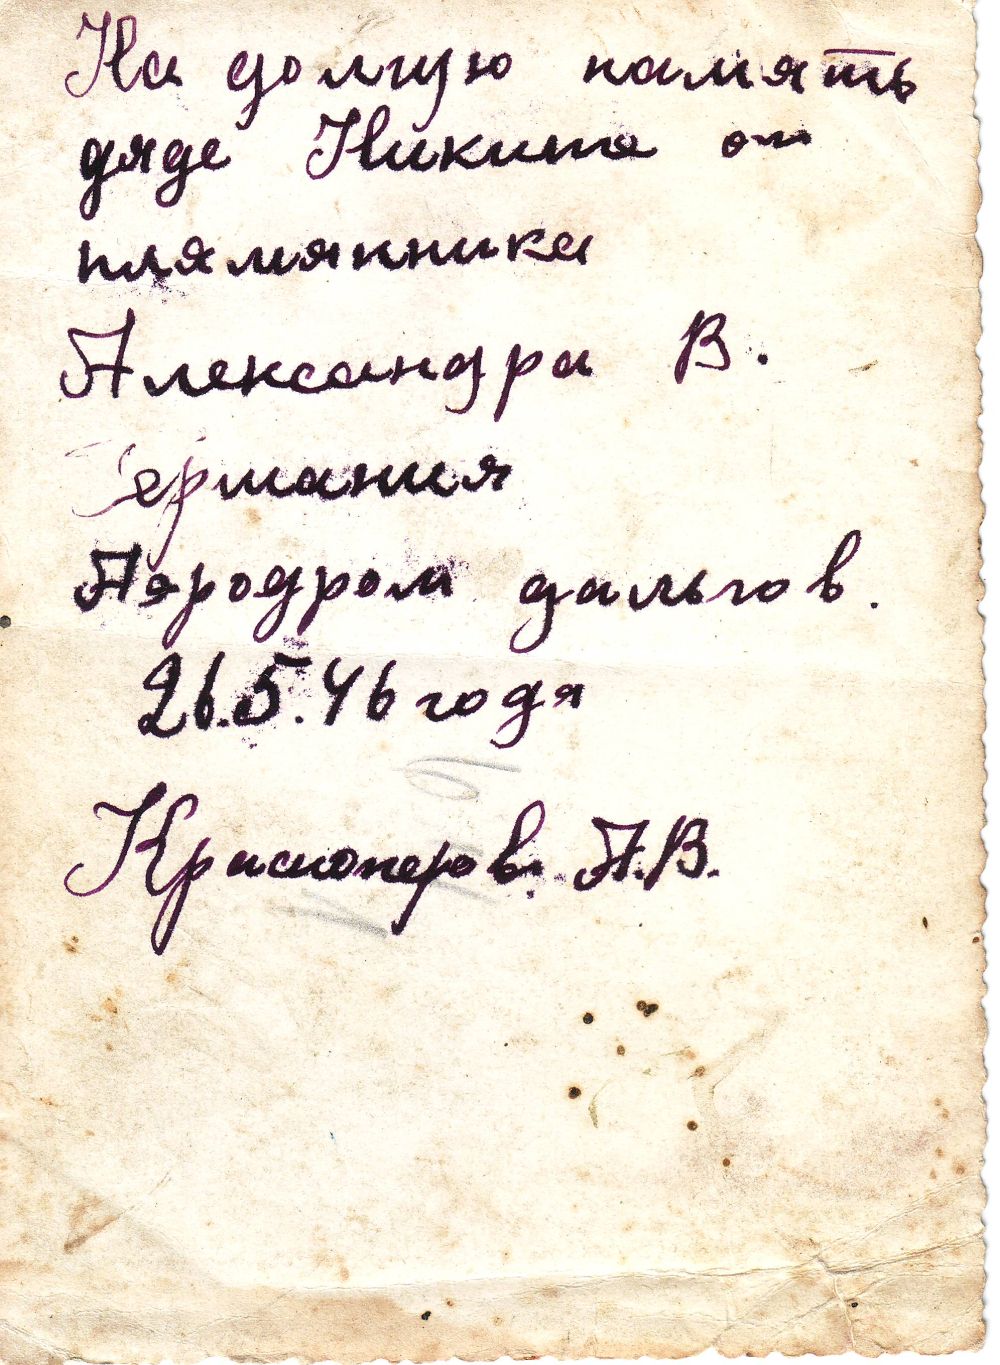 На долгую память
дяде Никите от
плямянника
Александра В.
Германия
Аэродром дальгов.
26.5.46 годя
Красноперов. А.В.